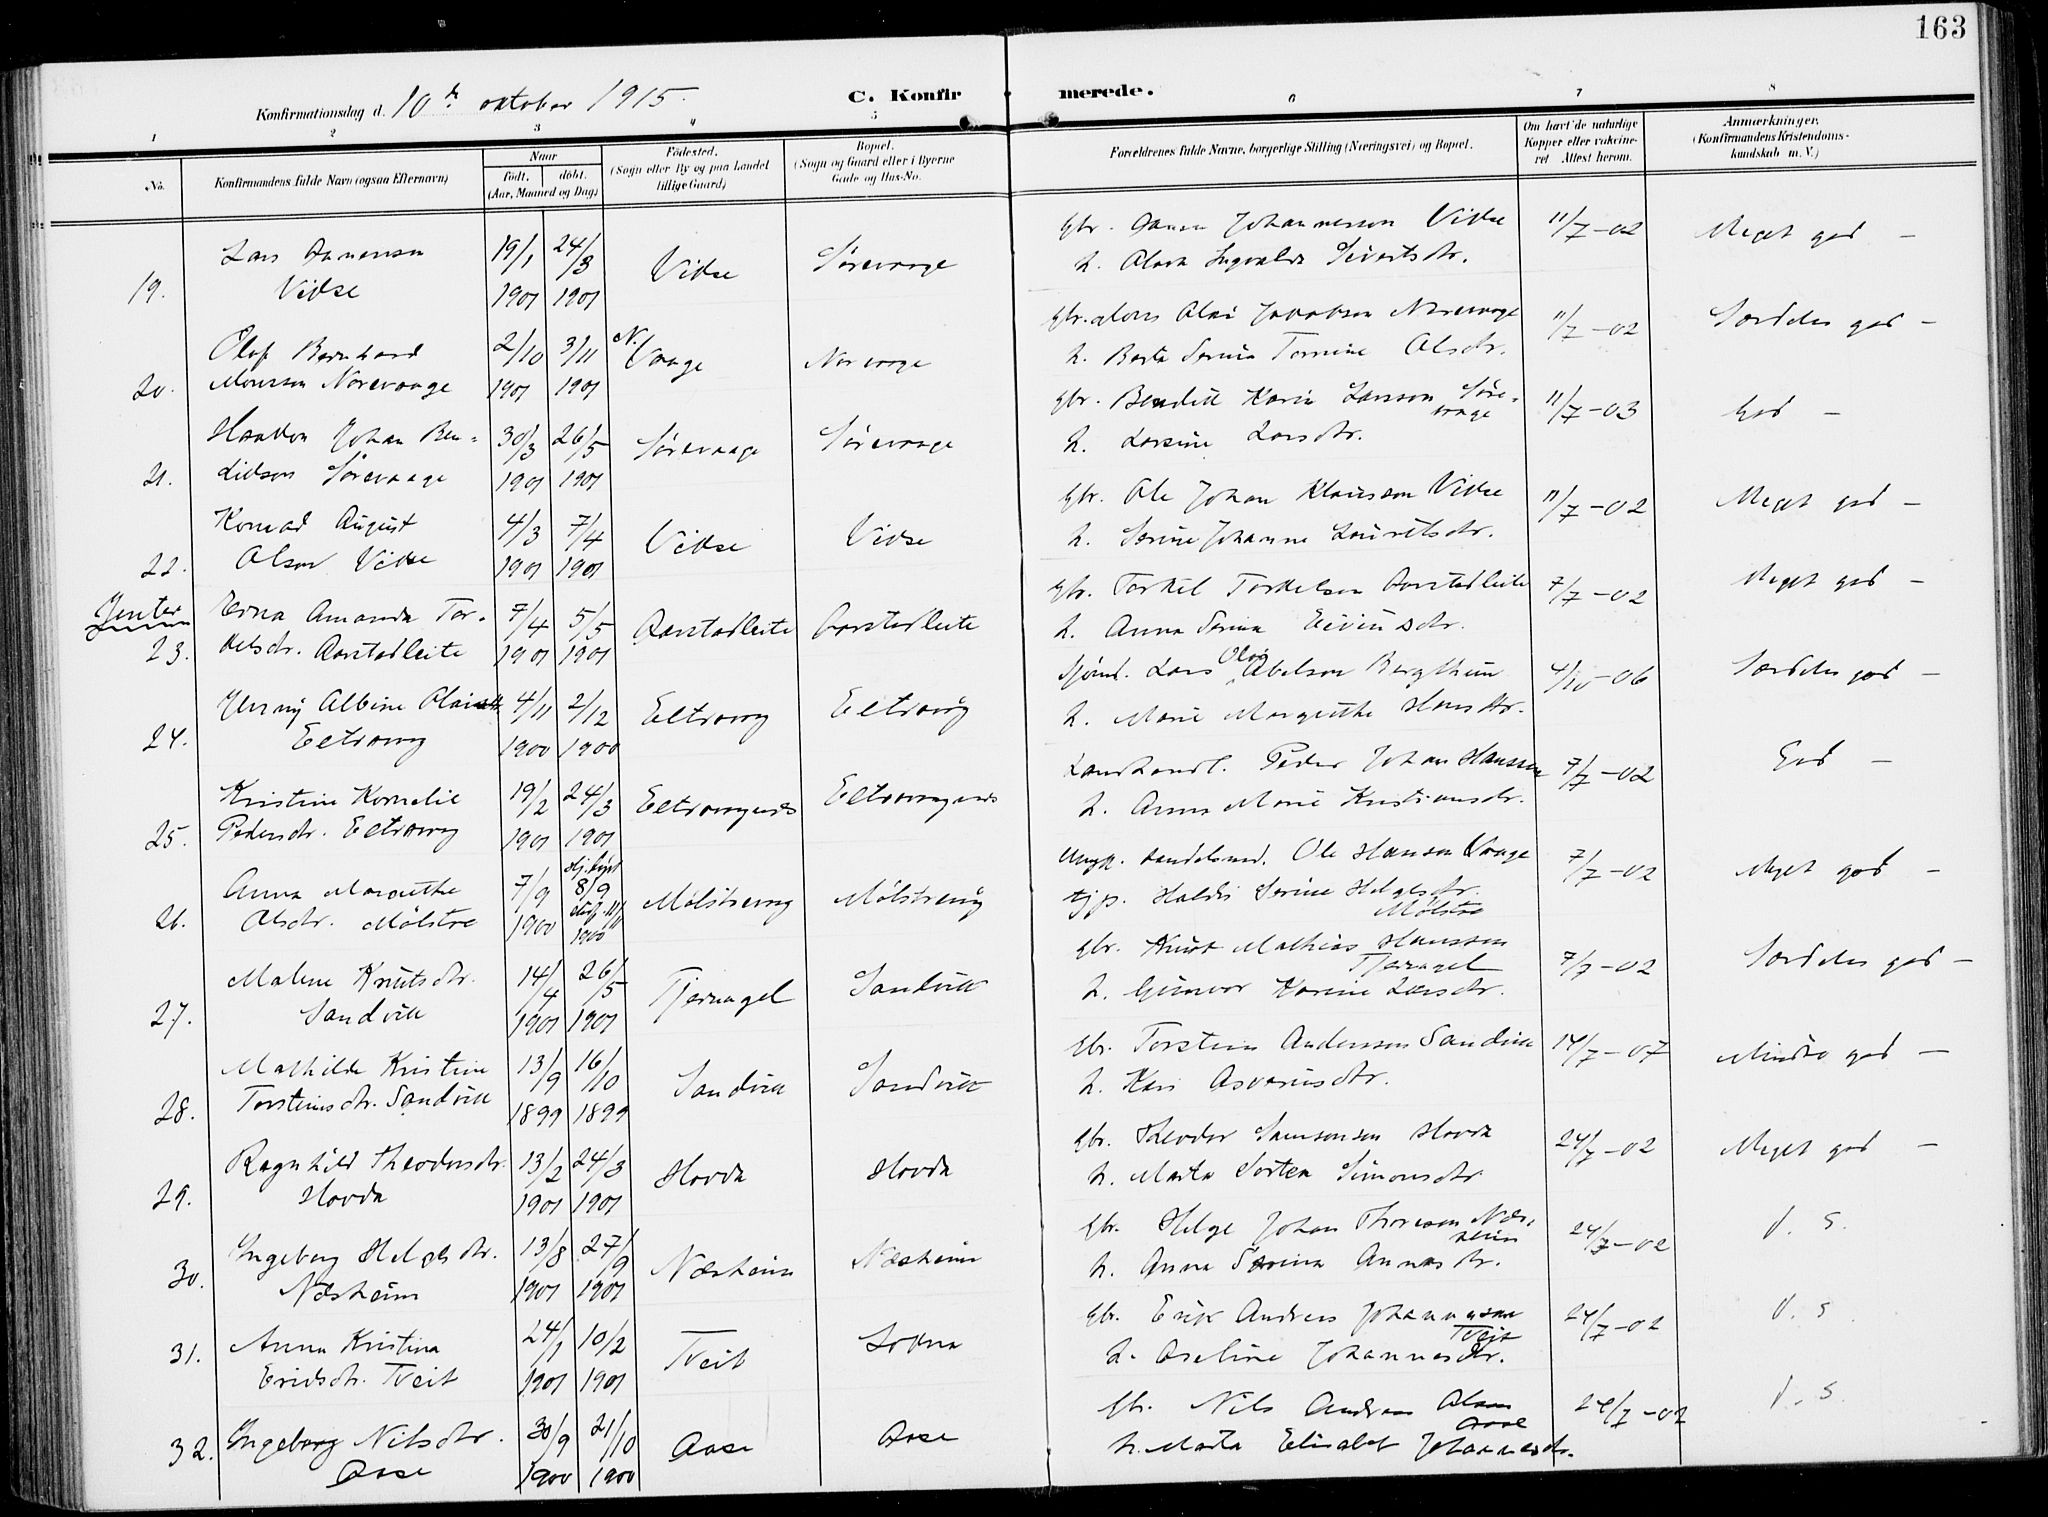 163
Konfirmationsdag d. 10de oktober 1915.
C. Konfirmerede.
1 2 3 4 5 6 7 8
No.
Konfirmandens fulde Navn (ogsaa Efternavn)
Naar
født. døbt.
(Aar, Maaned og Dag)
Fødested.
(Sogn eller By og paa Landet
tillige Gaard)
Bopæl.
(Sogn og Gaard eller i Byerne
Gade og Hus-No.
Forældrenes fulde Navne, borgerlige Stilling (Næringsvei) og Bopæl.
Om havt de naturlige
Kopper eller vakcine-
ret Attest herom.
Anmærkninger.
(Konfirmandens Kristendoms-
kundskab m. V.)
19.
Lars
Vikse
19/1 24/3
1901 1901
Vikse
Sørevaage
Gbr. Johannesson Vikse
h. Ingvalda Sivertsdtr.
11/7-02
Meget god -
20.
Olaf Bernhard
Monsson Nørevaage
2/10 3/11
1901 1901
N.
Vaage
Norvaage
Gbr. Mons Olai Jakobsen Nørevaage
h. Berta Serina Tomine Olsdtr.
11/7-02
Særdeles god -
21.
Haakon Johan Ben-
diksen Sørevaage
30/3 26/5
1901 1901
Sørevaage
Sørevaage
Gbr. Bendik Karin Larsson Søre-
vaage
h. Larsine Larsdtr.
11/7-03
God -
22.
Konrad August
Olson Vikse
4/3 7/4
1901 1901
Vikse
Vikse
Gbr. Ole Johan Klausson Vikse
h. Serine Johanne Lauritsdtr.
11/7-02
Meget god -
Jenter
23.
Erna Amanda Tor-
kelsdtr. Aarstadleite
7/4 5/5
1901 1901
Aarstadleite
Aarstadleite
Gbr. Torkel Torkelsen Aarstadleite
h. Anna Serina Eivindsdtr.
7/7-02
Meget god -
24.
Jenny Albine Olai
Eltravaag
4/11 2/12
1900 1900
Eltravaag
Eltravåg
Sjømd. Lars Olai Abelsen Bergthun
h. Marie Margrethe Hansdtr.
4/10-06
Særdeles god -
25.
Kristine Kornelie
Pedersdtr. Eltravaag
19/2 24/3
1901 1901
Eltravaagnes
Eltravaagnes
Landhandl. Peder Johan Hansson
h. Anna Marie Kristiansdtr.
7/7-02
God -
26.
Anna Margrethe
Olsdtr. Mølstre
7/9 Hj. døpt
8/9
stadf. 11/11
1900 1900
Mølstrevaag
Mølstrevåg
Ungk. handelsmd. Ole Hansen Vaage
tj.p. Haldis Serine Helgesdtr.
Mølstre
7/7-02
Meget god -
27.
Malene Knutsdtr.
Sandvik
14/4 26/5
1901 1901
Tjernagel
Sandvik
Gbr. Knut Mathias Hansson
Tjernagel
h. Gunvor Karine Larsdtr.
7/7-02
Særdeles god -
28.
Mathilde Kristine
Torsteinsdtr. Sandvik
13/9 16/10
1899 1899
Sandvik
Sandvik
Gbr. Torstein Andersson Sandvik
h. Kari
14/7-07
Mindre god -
29.
Ragnhild Theodorsdtr.
Hovda
13/2 24/3
1901 1901
Hovda
Hovda
Gbr. Theodor Samsonsen Hovda
h. Marta Simonsdtr
24/7-02
Meget god -
30.
Ingeborg Helgesdtr.
Næsheim
13/8 27/9
1901 1901
Næsheim
Næsheim
Gbr. Helge Johan Thoreson Næs-
heim
h. Anna Serina Annasdtr.
24/7-02
d. s.
31.
Anna Kristina
Eriksdtr. Tveit
24/1 10/2
1901 1901
Tveit
Lokna
Gbr. Erik Andreas Johannesson
Tveit
h. Oseline Johannesdtr.
24/7-02
d. s.
32.
Ingeborg Nilsdtr.
Aase
30/9 21/10
1900 1900
Aase
Aase
Gbr. Nils Andreas Olson
Aase
h. Marta Elisabet Johannesdtr.
24/7-02
d. s.